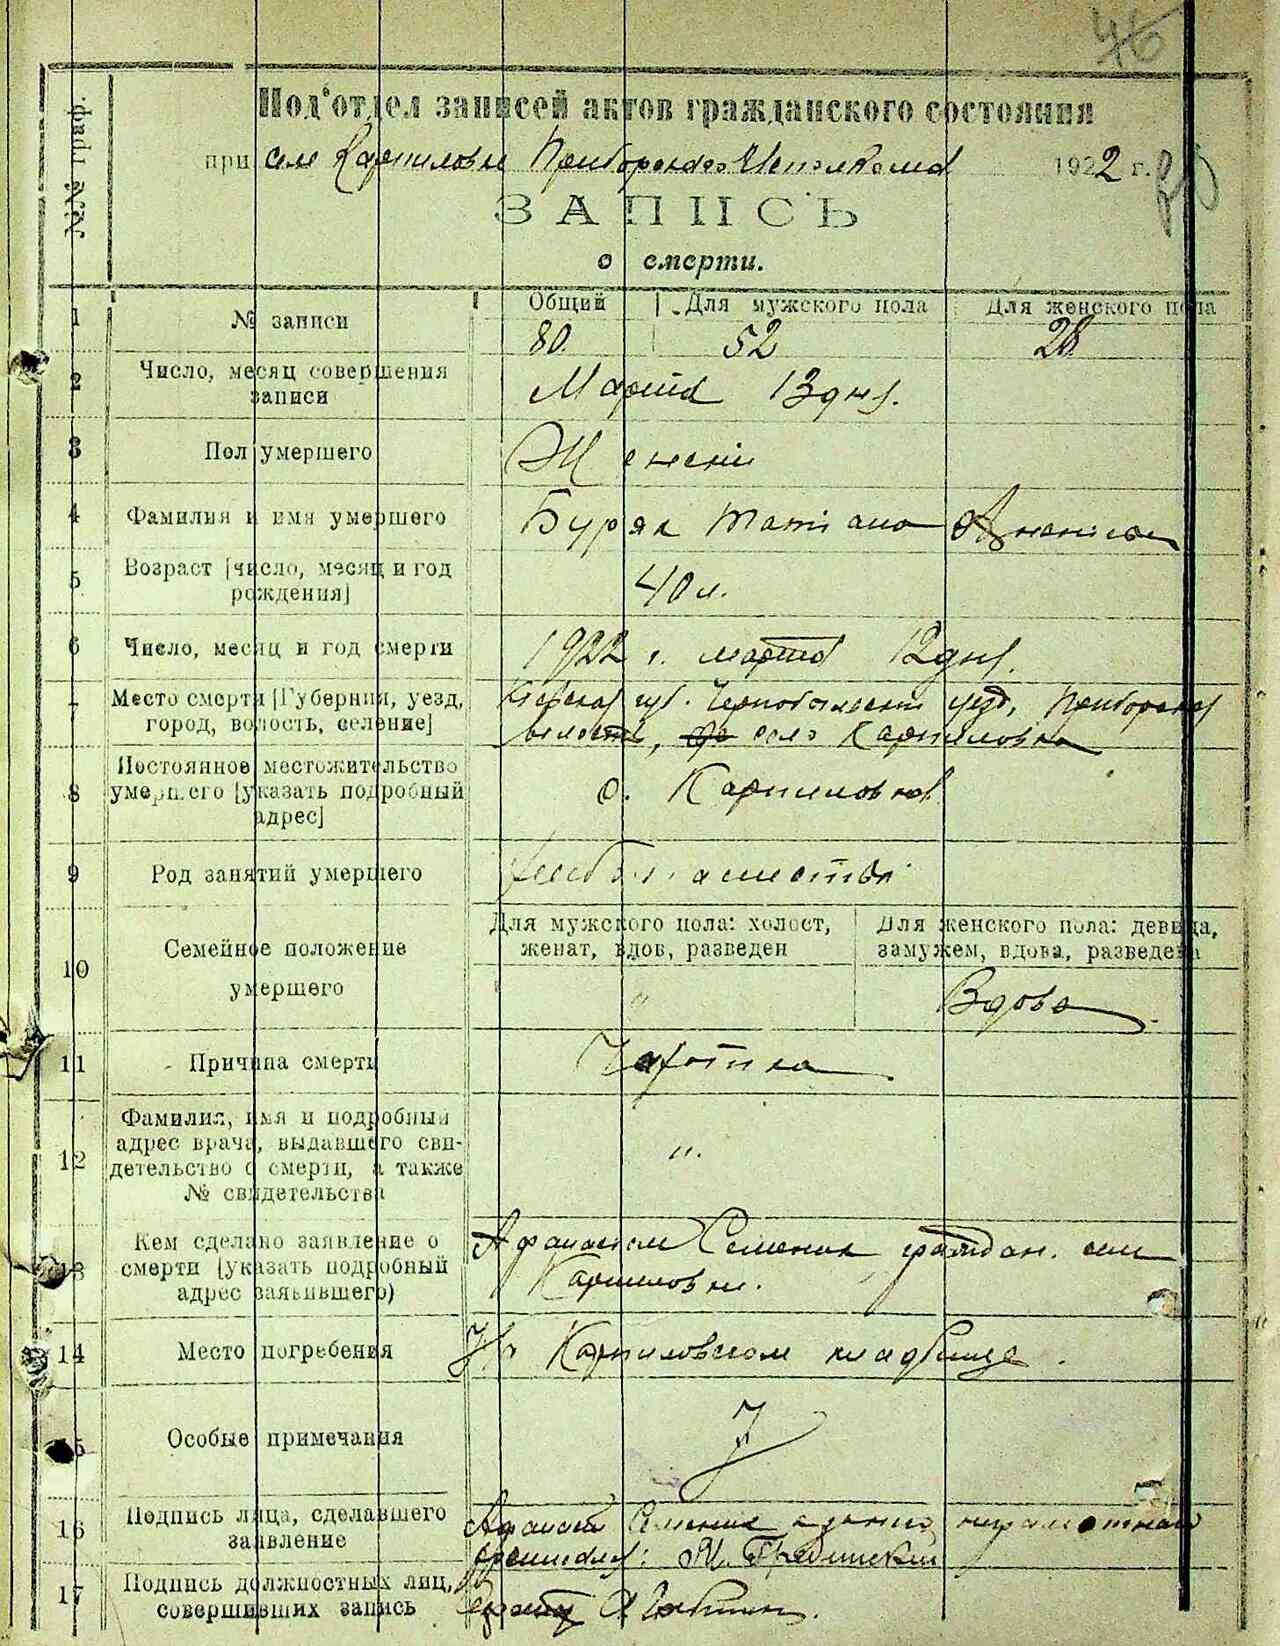 46
№№ граф.
Под'отдел записей актов гражданского состояния
при селе Карпиловке Приборского Исполкома 1922 г.
20
ЗАПИСЬ
о смерти.
Общий Для мужского пола Для женского пола
1 № записи 80. 52 28
2 Число, месяц совершения
записи
Марта 13 дня.
3 Пол умершего Женски
4 Фамилия и имя умершего Буряк Татиана
5 Возраст [число, месяц и год
рождения]
40 л.
6 Число, месяц и год смерти 1922 г. марта 12 дня.
7 Место смерти [Губерния, уезд,
город, волость, селение]
Киевская губ. Чернобыльский уезд, Приборская
волость, село Карпиловка
8 Постоянное местожительство
умершего [указать подробный
адрес]
с. Карпиловка
9 Род занятий умершего
10 Семейное положение
умершего
Для мужского пола: холост,
женат, вдов, разведен
Для женского пола: девица,
замужем, вдова, разведена
" Вдова
11 Причина смерти Чахотка
12 Фамилия, имя и подробный
адрес врача, выдавшего сви-
детельство о смерти, а также
№ свидетельства
".
13 Кем сделано заявление о
смерти [указать подробный
адрес заявившего)
Афанасием Семеник граждан. села
Карпиловки.
14 Место погребения На Карпиловском кладбище.
15 Особые примечания
16 Подпись лица, сделавшего
заявление
Афанасий Семеник а за него неграмотного
17 Подпись должностных лиц,
совершивших запись